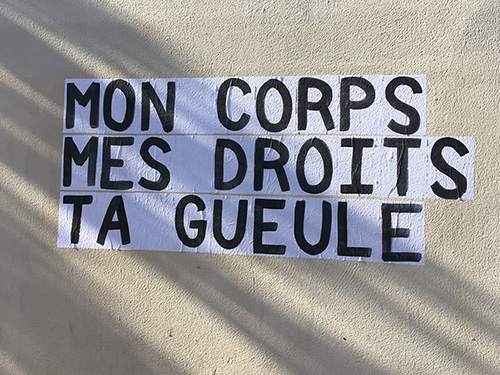 MON CORPS
MES DROITS
TA GUEULE